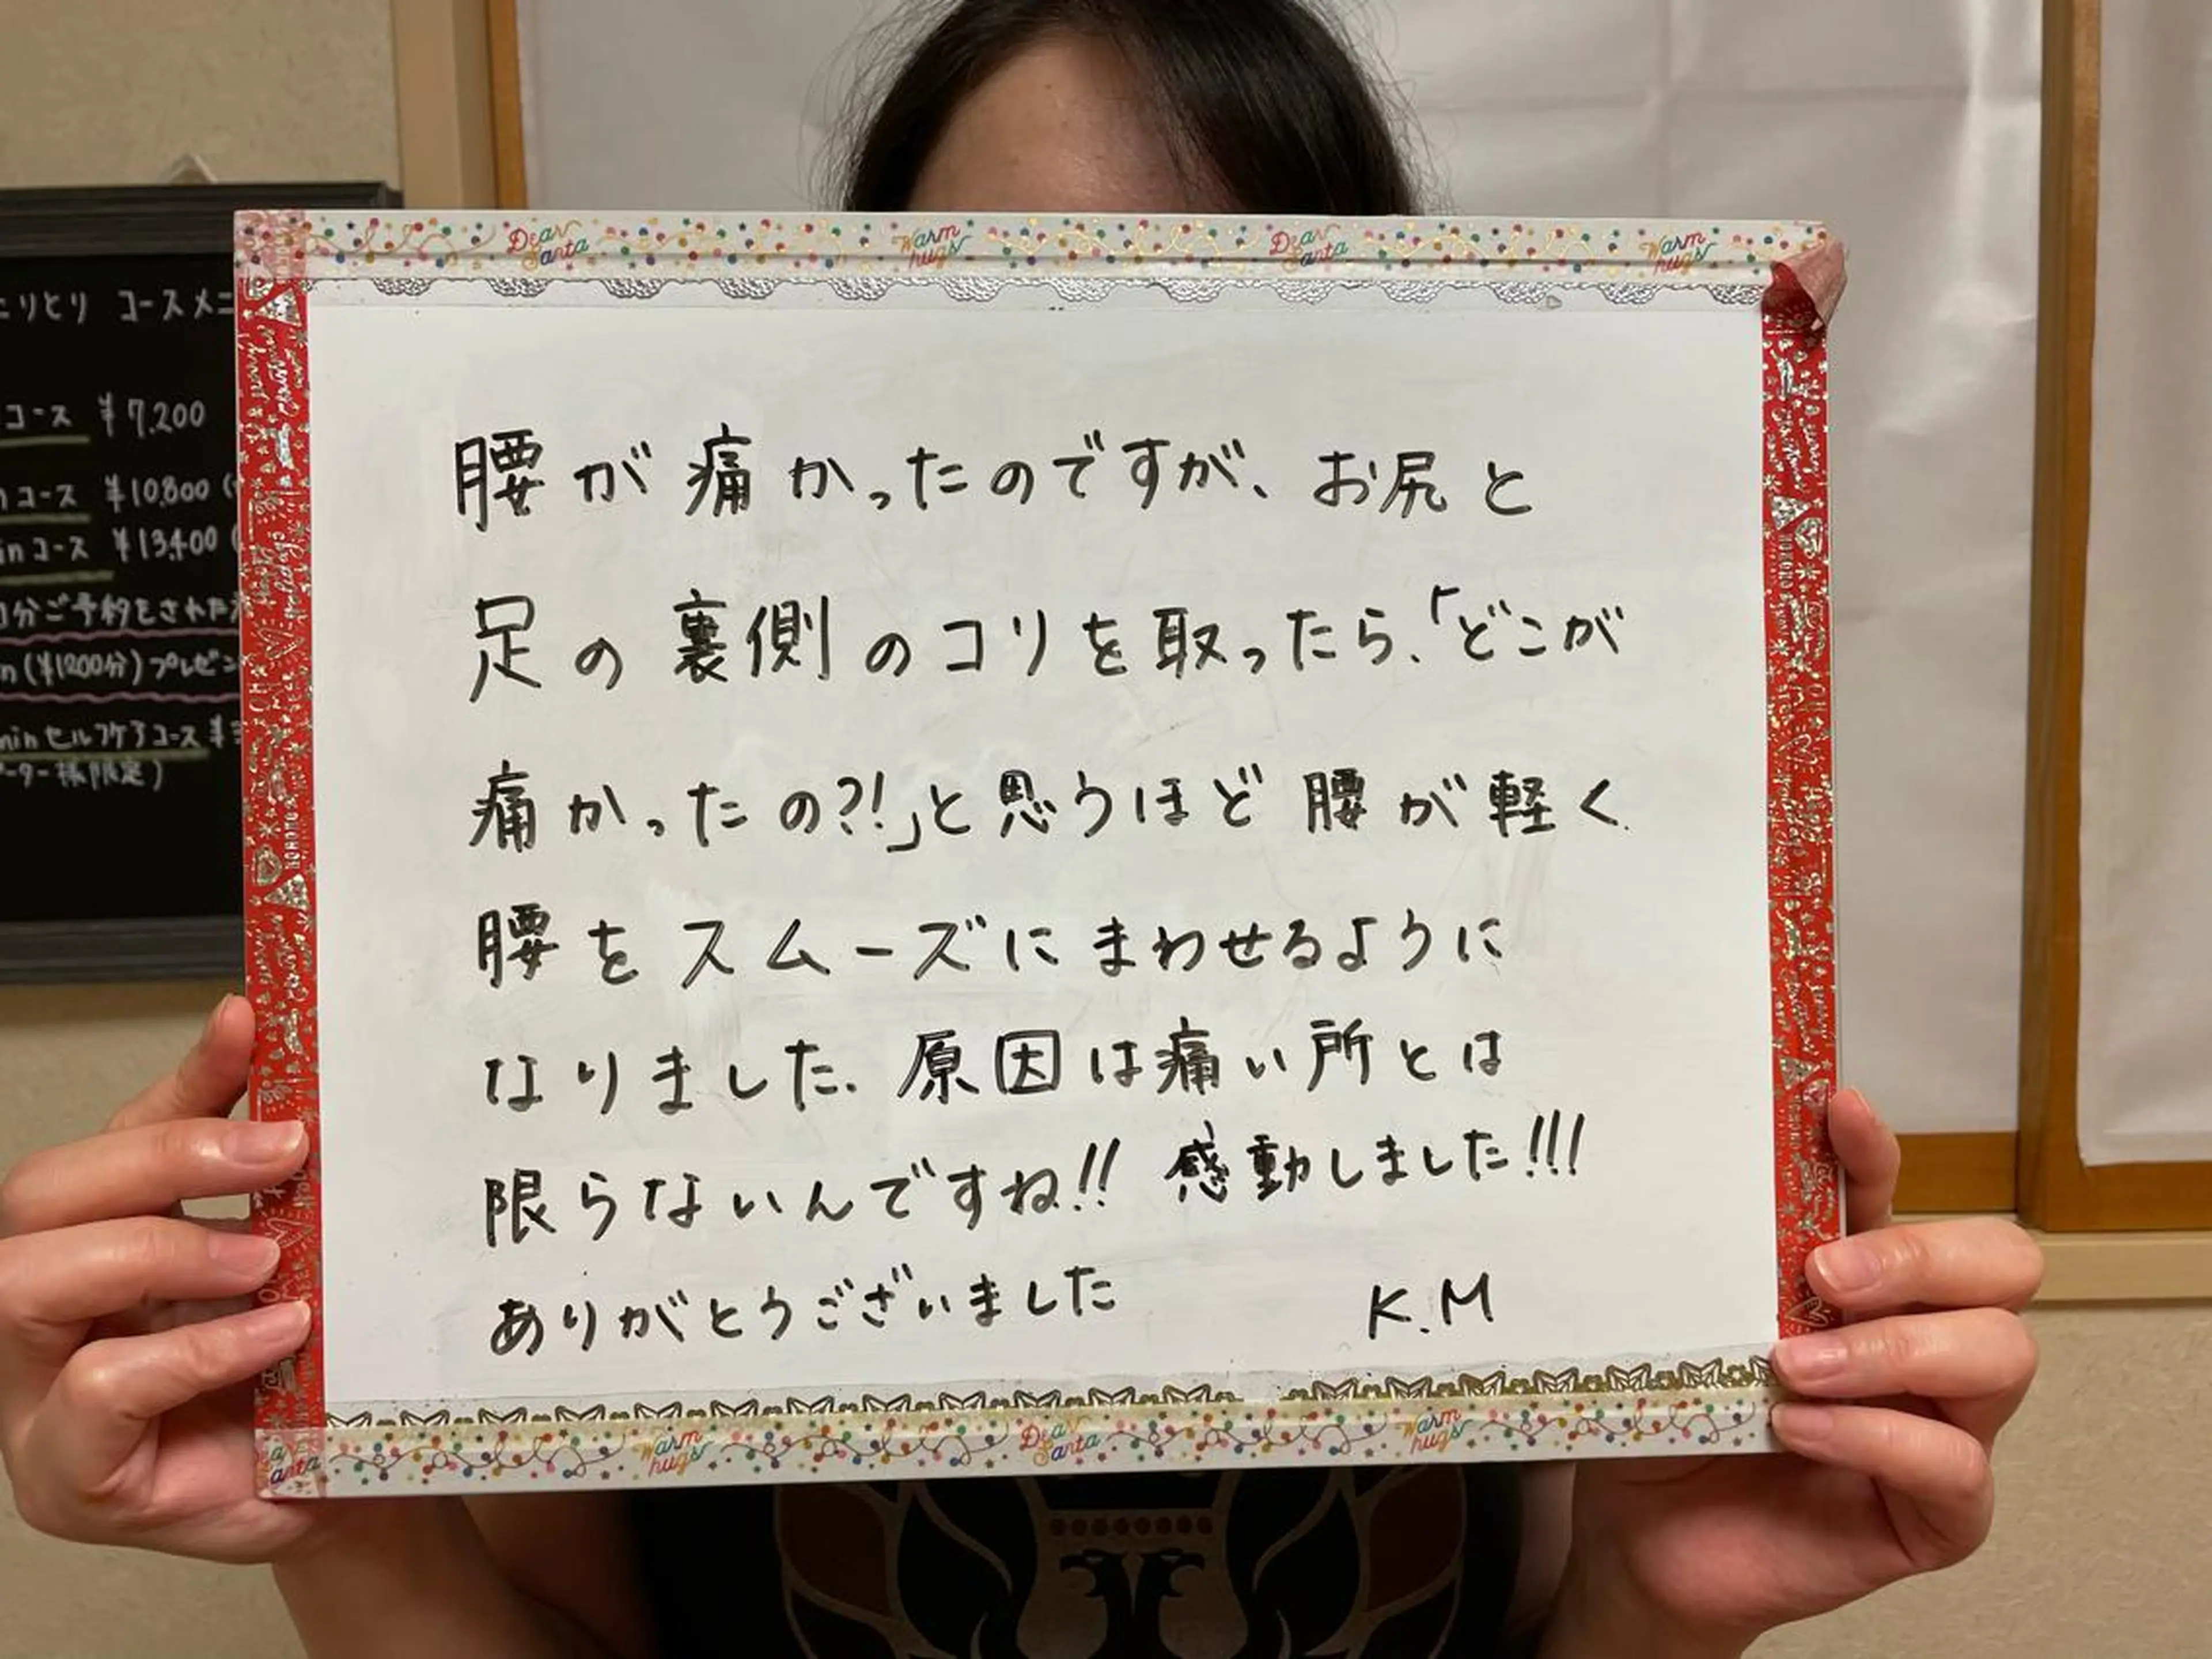 腰が痛かったのですが、お尻と
足の裏側のコリを取ったら、「どこが
痛かったの?!」と思うほど腰が軽く
腰をスムーズにまわせるように
なりました。原因は痛い所とは
限らないんですね!! 感動しました!!!
ありがとうございました K.M
りとり コースメニ
コース ¥7,200
コース ¥10,800
inコース ¥13,400
分ご予約をされた
(¥1200分)プレゼン
minセルフケアコース ¥
ーター様限定)
Dear Santa Warm hugs Dear Santa Warm hugs
Warm hugs Dear Santa Warm hugs